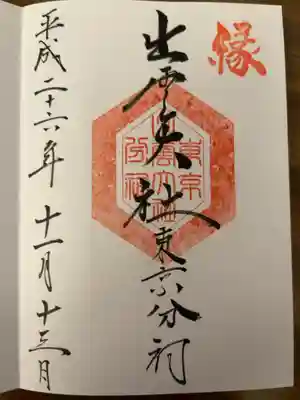 縁
出雲大社東京分祠
東京
出雲大社
分祠
平成二十六年十一月十三日